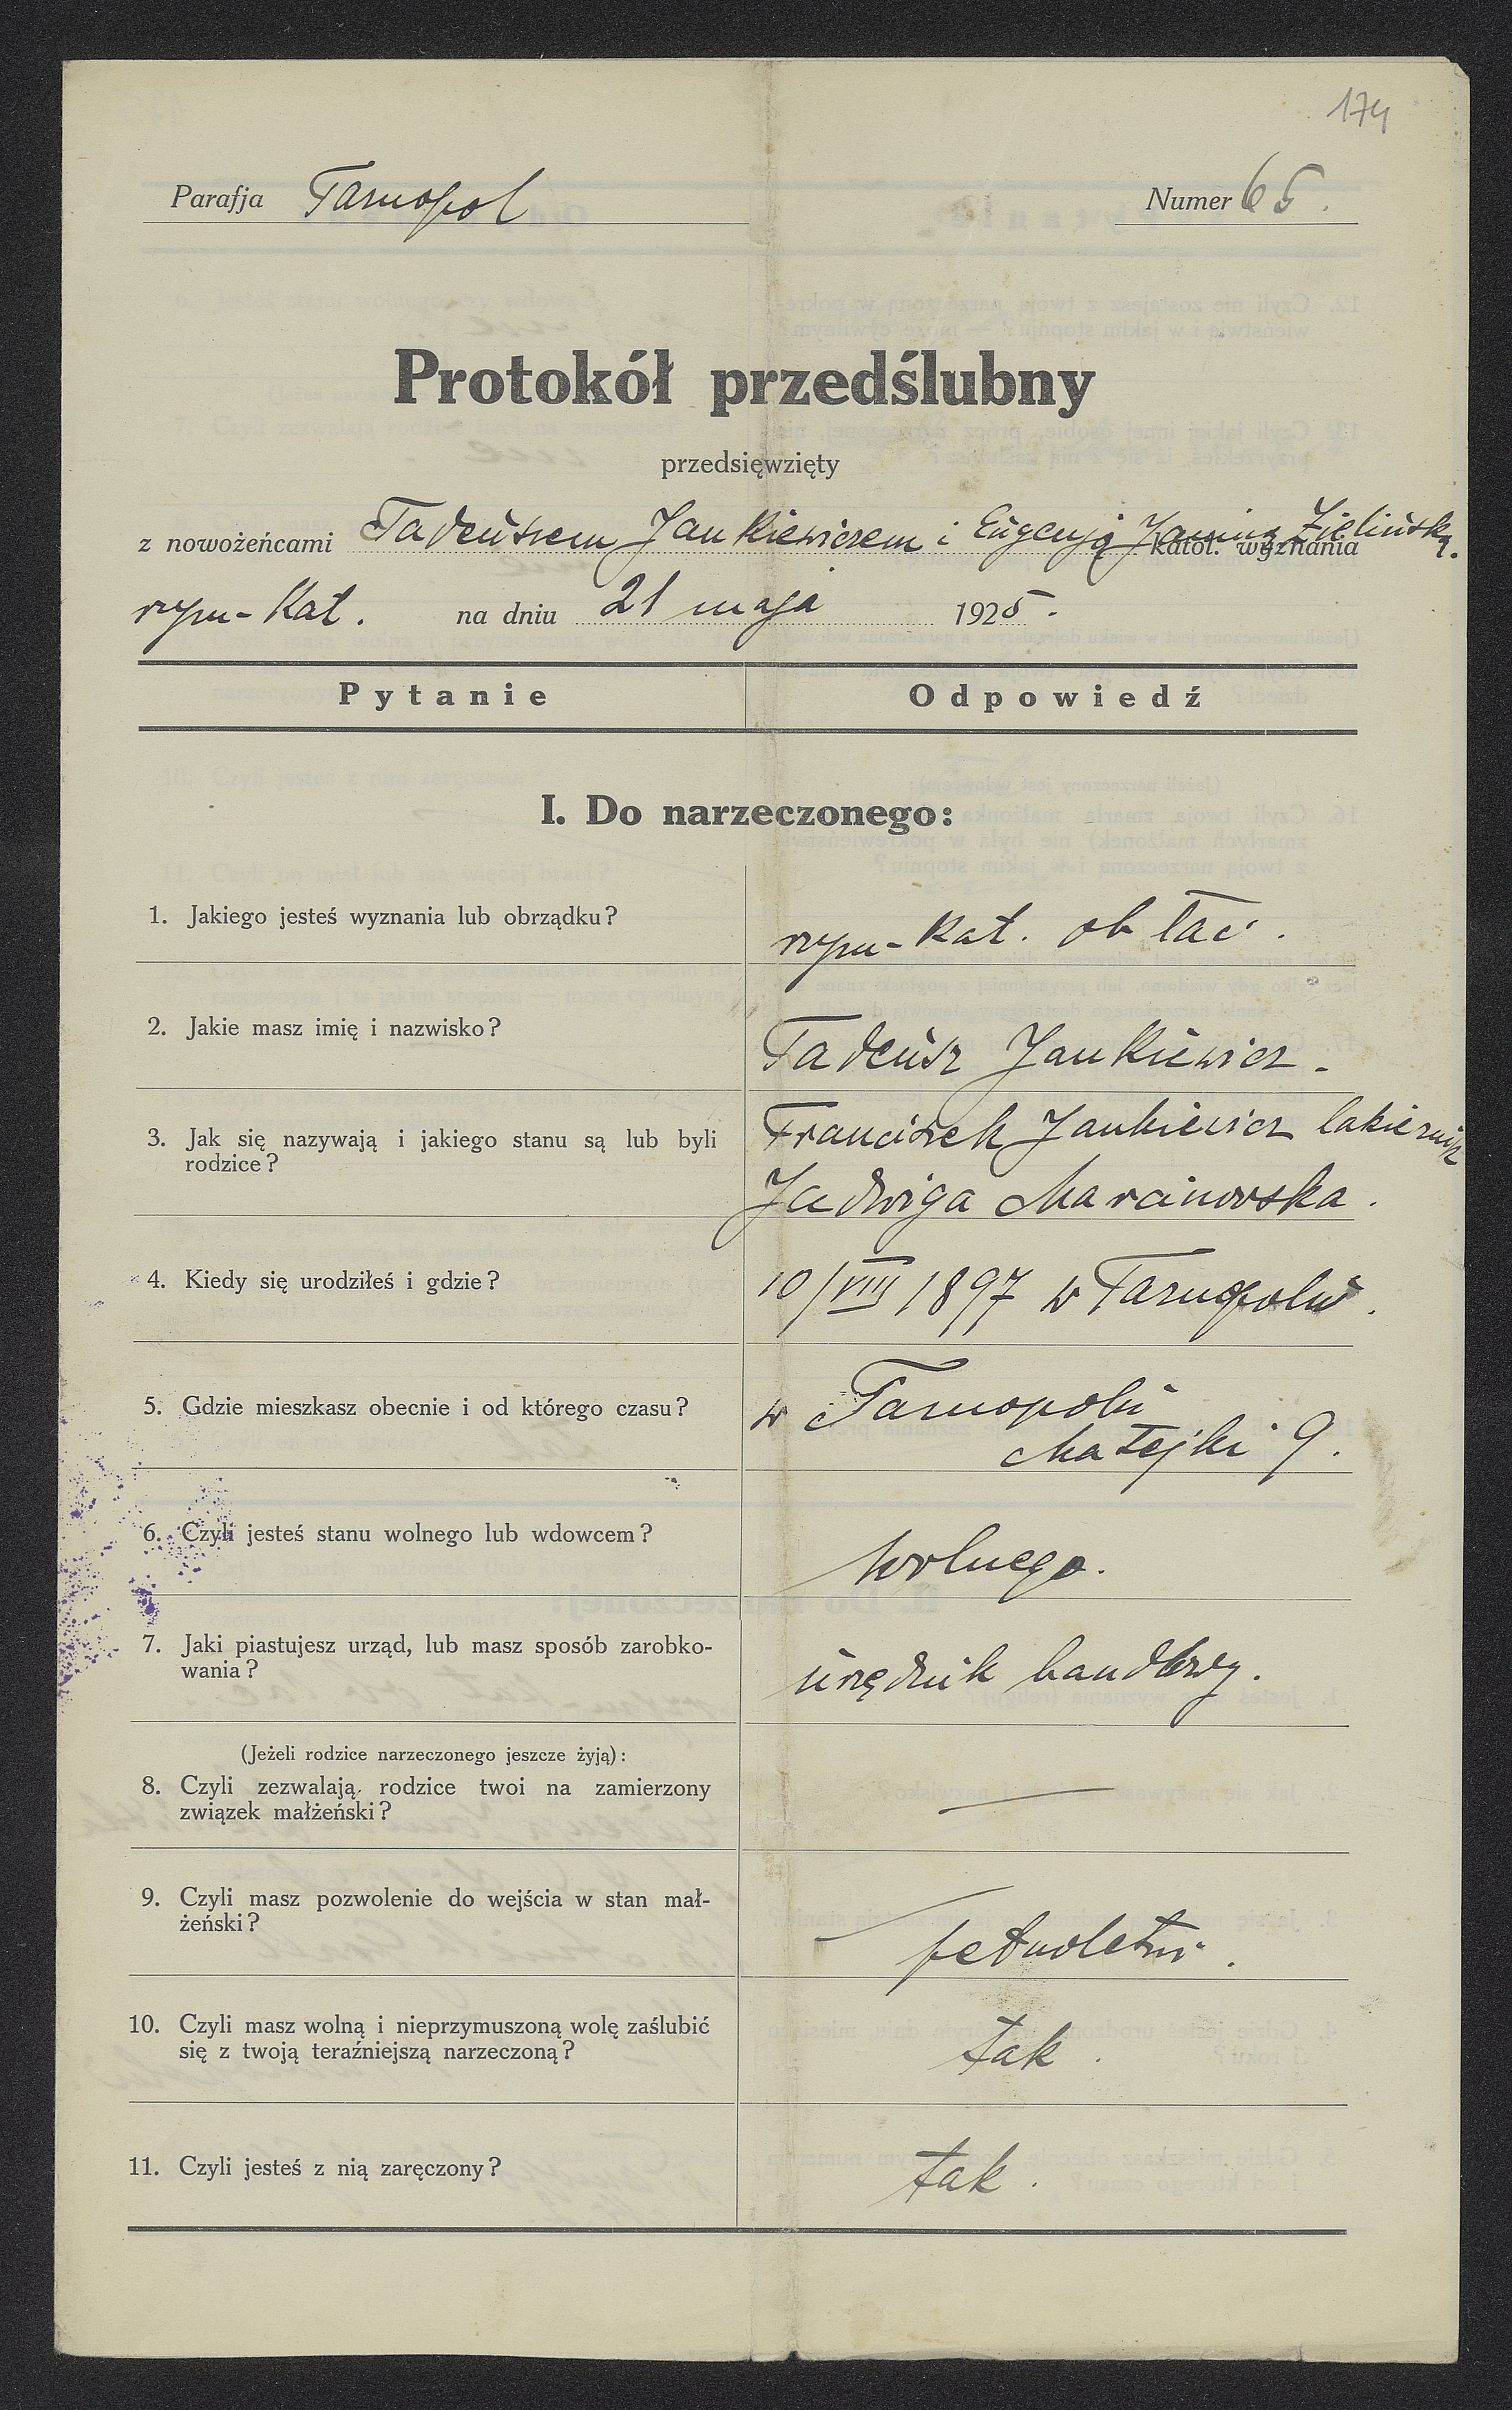 174
Parafja Tarnopol Numer 65.
Protokół przedślubny
przedsięwzięty
z nowożeńcami Tadeuszem Jankiewiczem i Eugenją Janiną Zielińską. katol. wyznania
rzym-kat. na dniu 21 maja 1925.
Pytanie Odpowiedź
I. Do narzeczonego:
1. Jakiego jesteś wyznania lub obrządku?
rzym-kat. ob łać.
2. Jakie masz imię i nazwisko?
Tadeusz Jankiewicz.
3. Jak się nazywają i jakiego stanu są lub byli
rodzice?
Franciszek Jankiewicz lakiernik
Jadwiga Marcinowska.
4. Kiedy się urodziłeś i gdzie?
10/VIII 1897 w Tarnopolu.
5. Gdzie mieszkasz obecnie i od którego czasu?
w Tarnopolu
Matejki 9.
6. Czyli jesteś stanu wolnego lub wdowcem?
Wolnego.
7. Jaki piastujesz urząd, lub masz sposób zarobko-
wania?
urzędnik handlowy.
(Jeżeli rodzice narzeczonego jeszcze żyją):
8. Czyli zezwalają rodzice twoi na zamierzony
związek małżeński?
—
9. Czyli masz pozwolenie do wejścia w stan mał-
żeński?
pełnoletni.
10. Czyli masz wolną i nieprzymuszoną wolę zaślubić
się z twoją teraźniejszą narzeczoną?
tak.
11. Czyli jesteś z nią zaręczony?
tak.